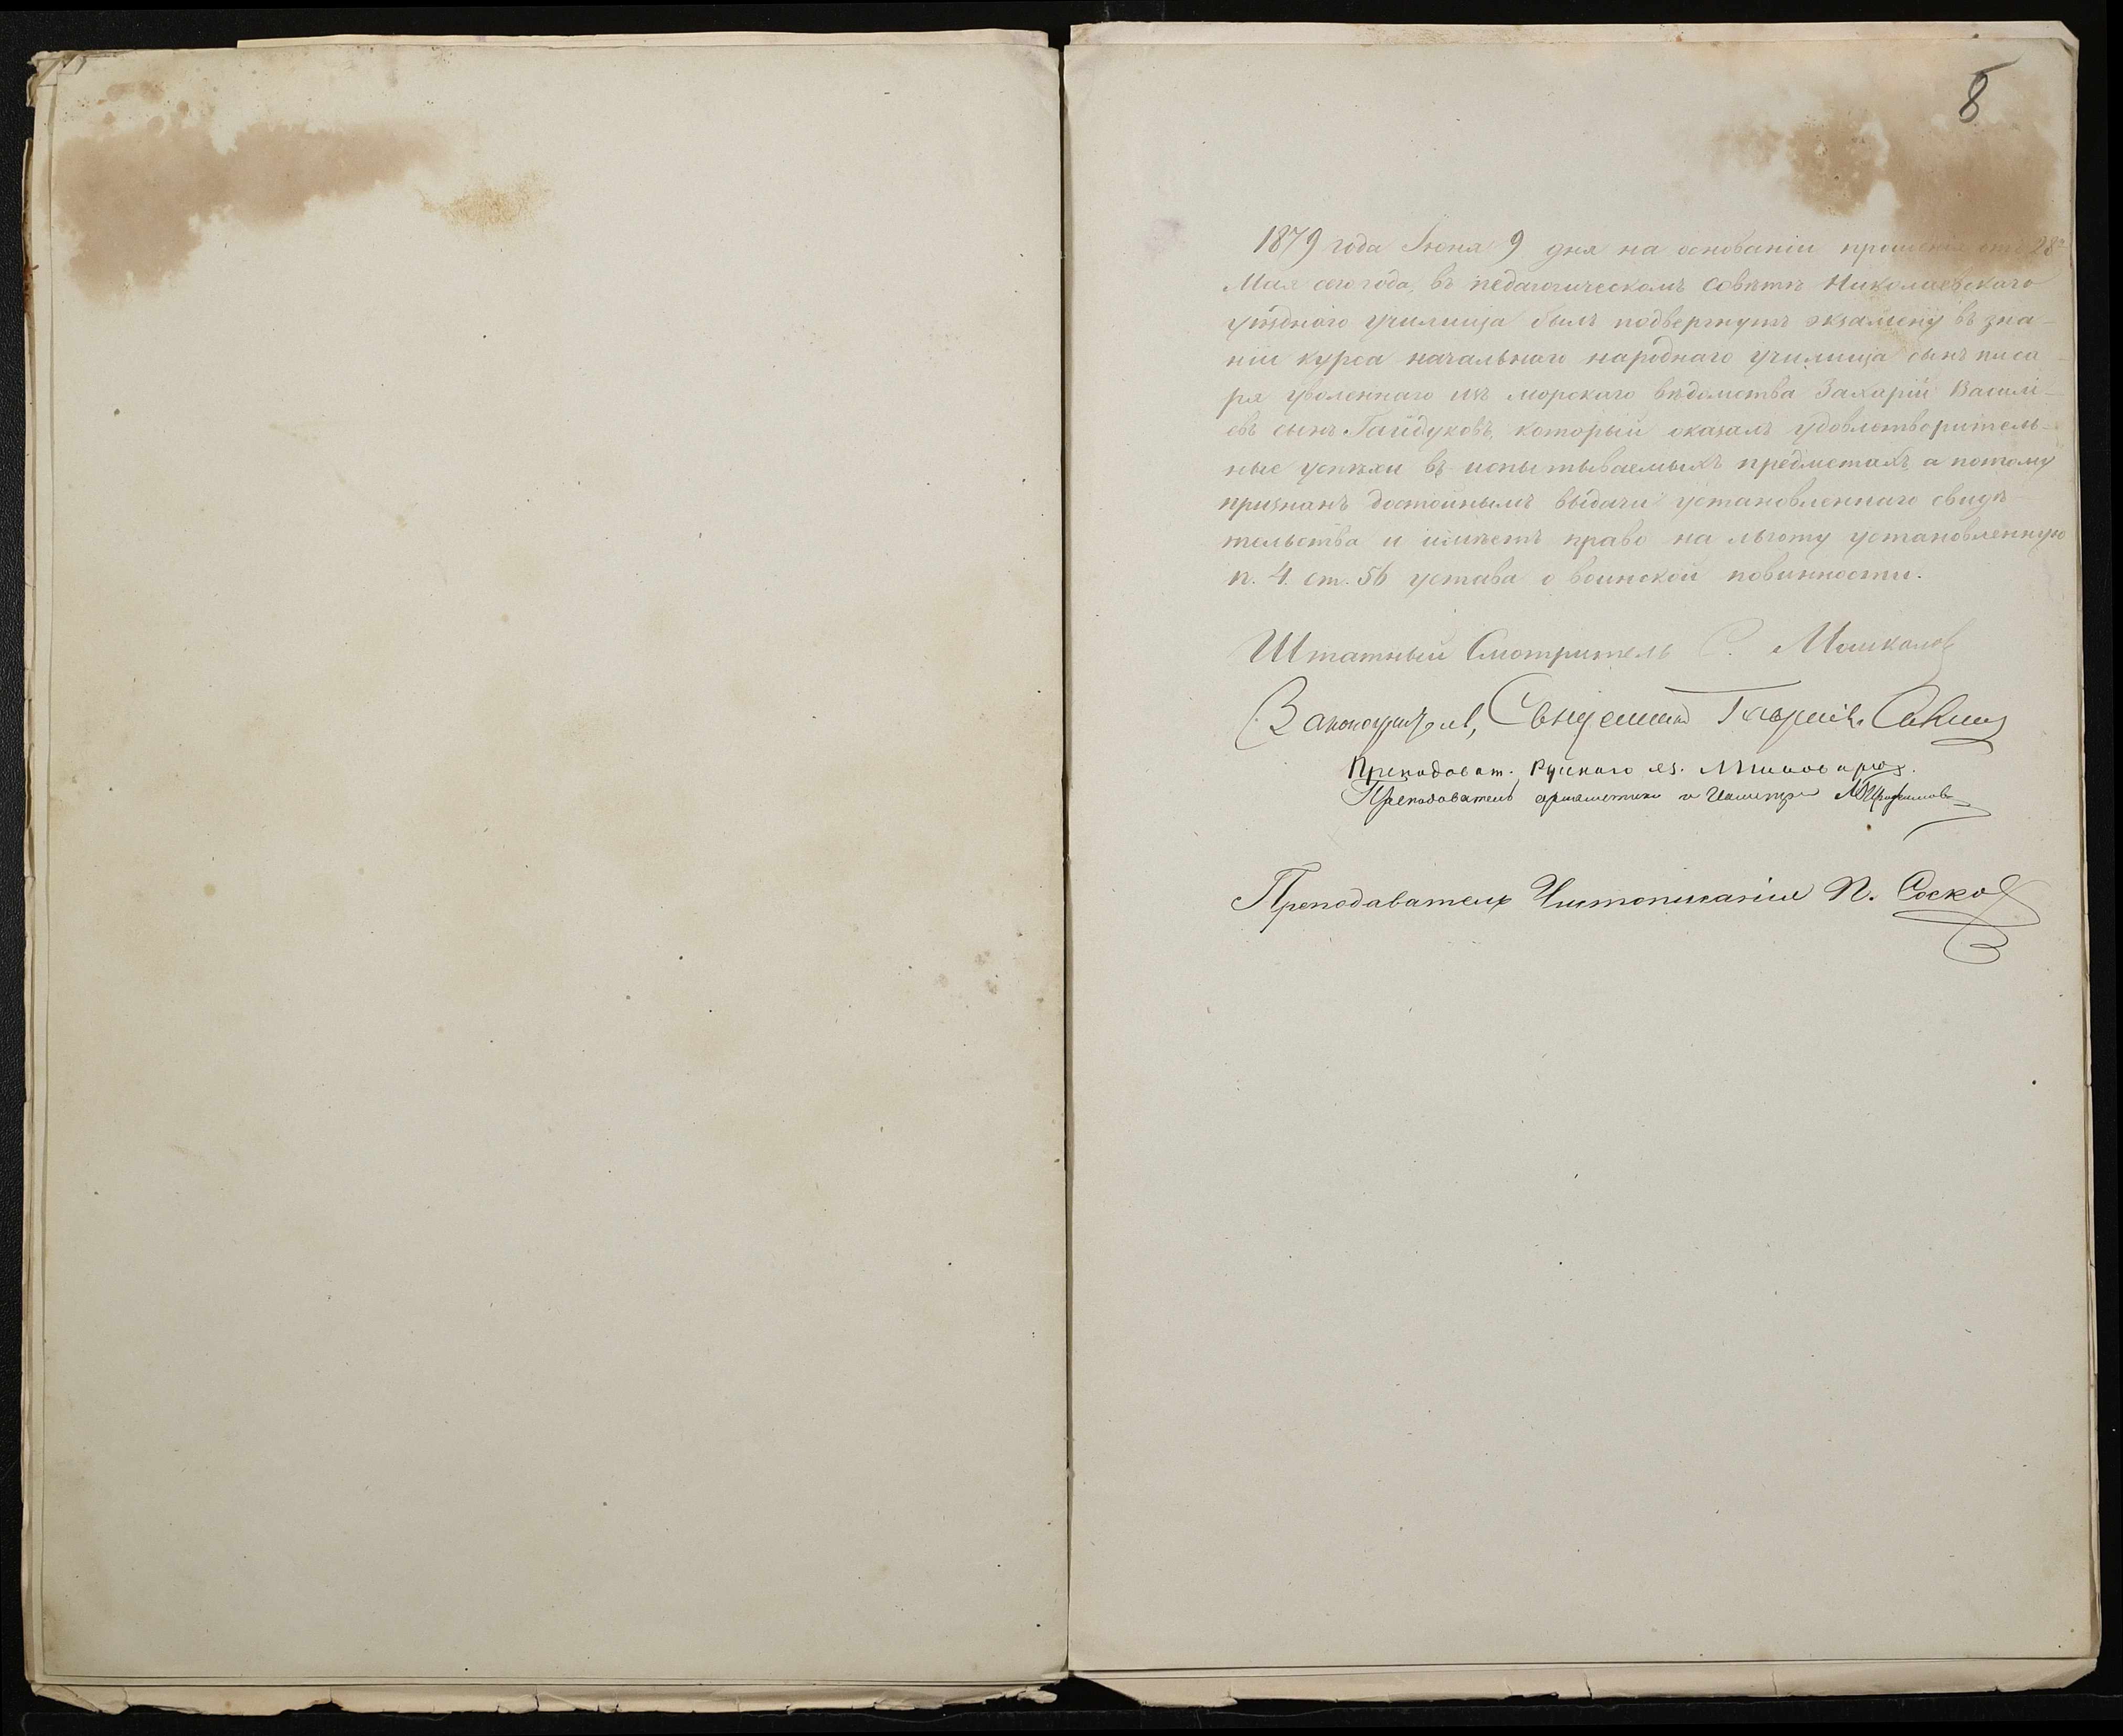 8
1879 года Іюня 9 дня на основаніи прошенія отъ 28го
Мая сего года, въ педагогическомъ совѣтѣ Николаевскаго
уѣзднаго училища былъ подвергнутъ экзамену въ зна-
ніи курса начальнаго народнаго училища сынъ писа-
ря уволеннаго изъ морскаго вѣдомства Захарій Василі-
евъ сынъ Гайдуковъ, который оказалъ удовлетворитель-
ные успѣхи въ испытываемыхъ предметахъ, а потому
признанъ достойнымъ выдачи установленнаго свидѣ
тельства и имѣетъ право на льготу установленную
п. 4. ст. 56 устава о воинской повинности.
Штатный Смотритель С.
Законоучитель, Священникъ Гавріилъ
Преподават. Русскаго яз.
Преподаватель ариѳметики и Геометріи
Преподаватель Чистописанія П. Соско